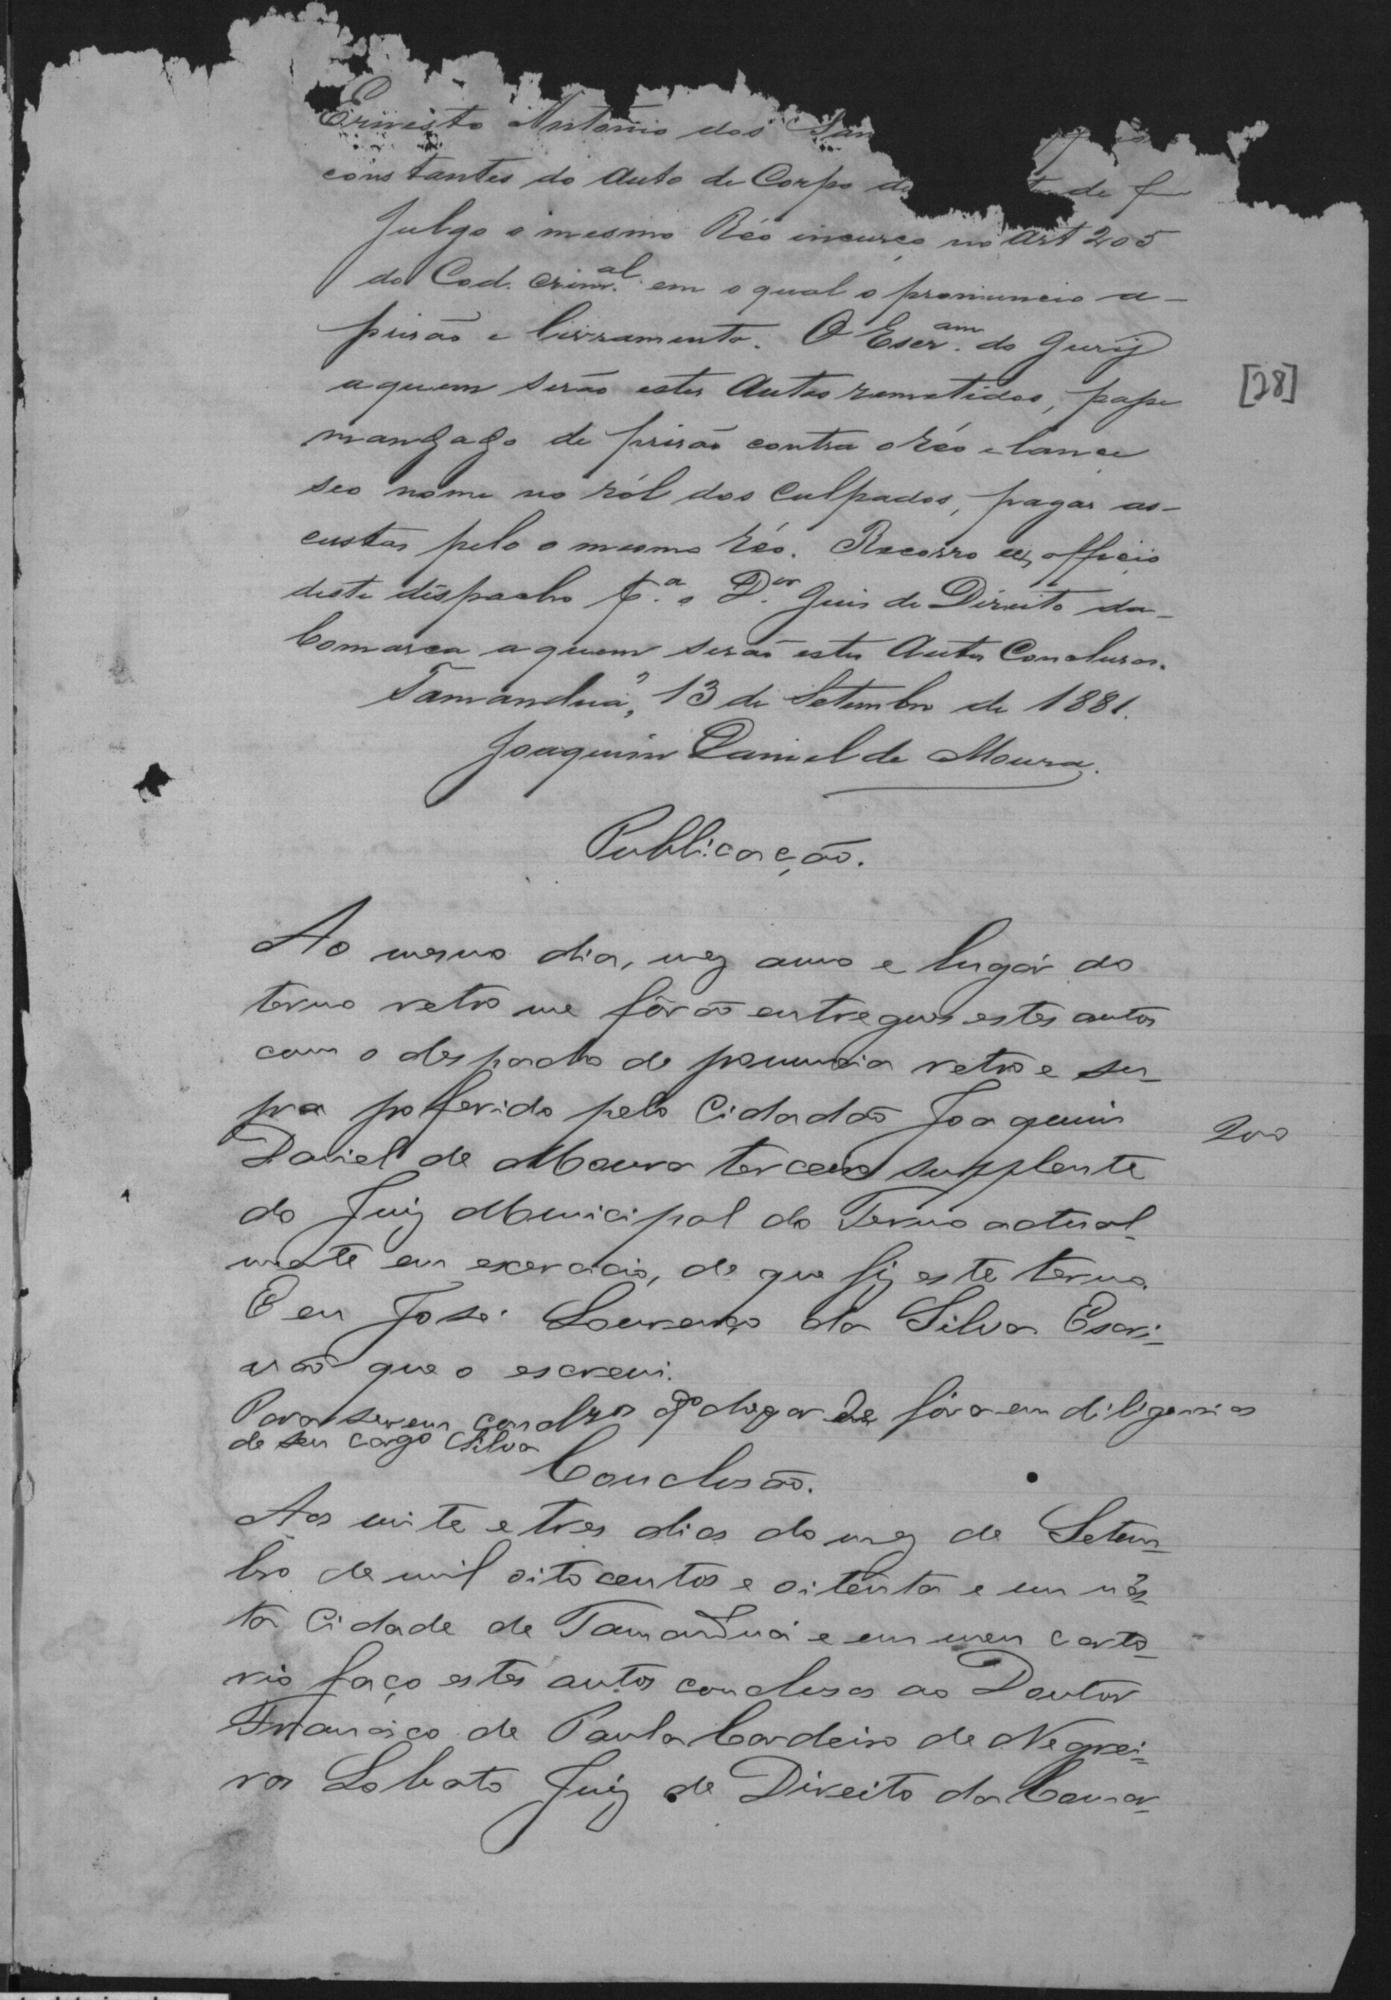 Ernesto Antonio dos San
constantes do Auto de Corpo de de f
Julgo o mesmo Réo incurço no Art 205
do Cod. crim.al em o qual o pronuncio a-
prisão e livramento. O Escr.am do Jury
a quem serão estes Autos remettidos, passe
mandado de prisão contra o réo e lance
seo nome no ról dos Culpados, pagas as-
custas pelo o mesmo réo. Recorro ex officio
deste dispacho p.a o D.or Juis de Direito da-
Comarca a quem serão estes Autos Conclusos.
Tamanduá, 13 de Setembro de 1881.
Joaquim Daniel de Moura.
[28]
Publicação.
Ao mesmo dia, mez anno e lugár do
termo retro me fôrão entregues estes autos
com o despacho de pronuncia retro e su-
pra proferido pelo Cidadão Joaquim
200
Daniel de Moura terceiro supplente
do Juiz Municipal do Termo actual-
mente em exercicio, de que fiz este termo.
E eu José Lourenço da Silva Escri-
vão que o escrevi.
Para serem conclzos qdo chegar de fóra em diligencias
de seu cargo Silva
Conclusão.
Aos vinte e tres dias do mez de Setem-
bro de mil oito centos e oitenta e um nes-
ta Cidade de Tamanduá e em meu carto-
rio faço estes autos conclusos ao Doutor
Francisco de Paula Cordeiro de Negrei-
ros Lobato Juiz de Direito da Comar-